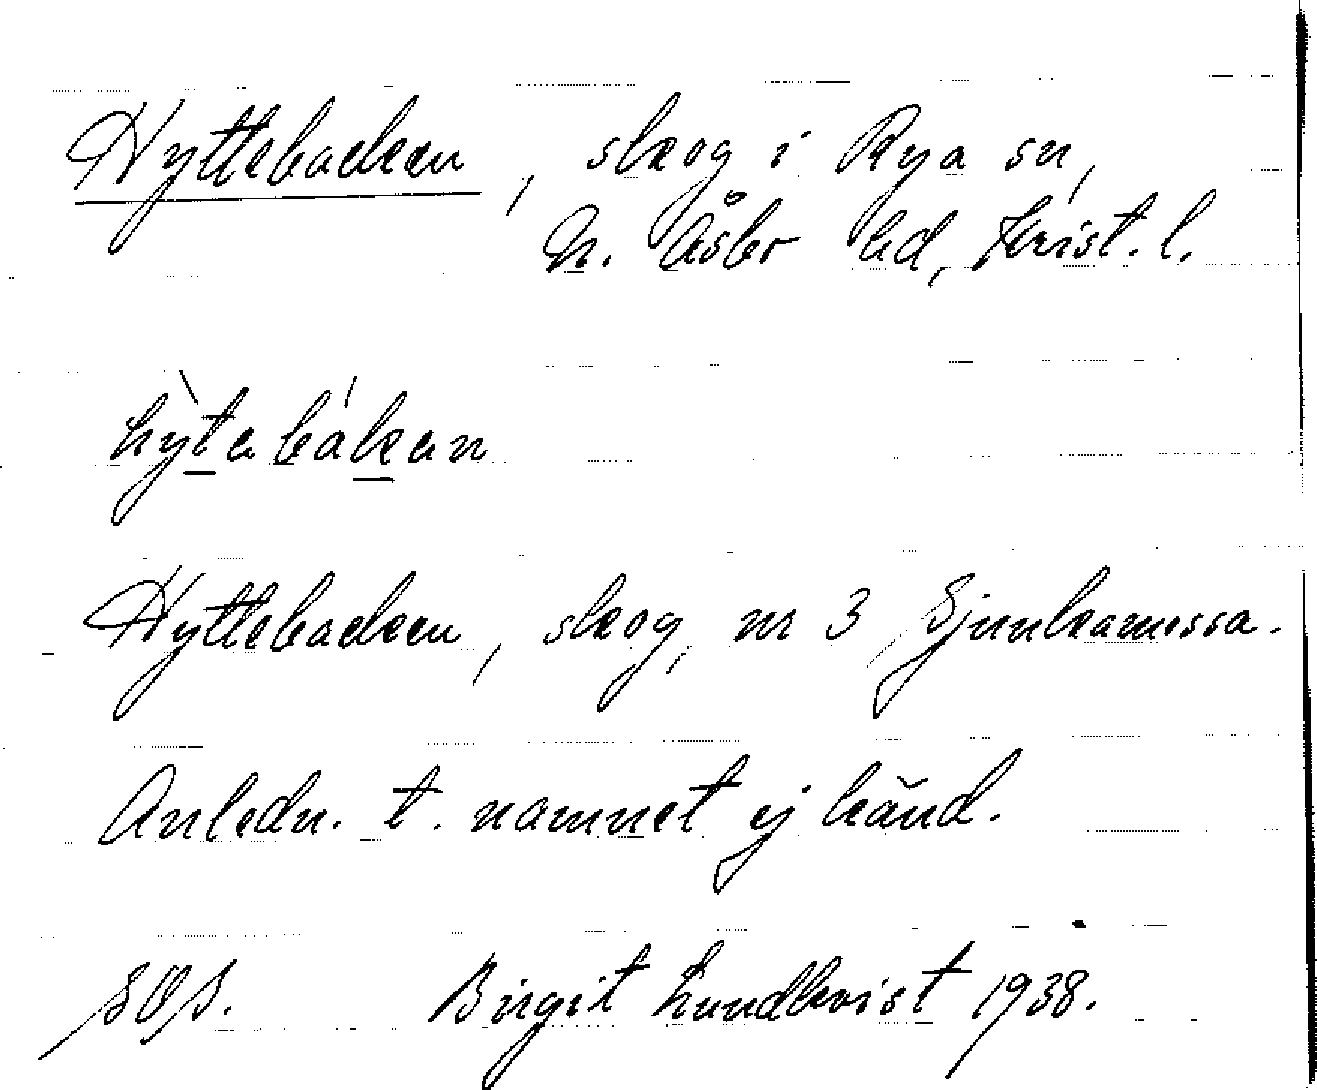 Hyttebacken, skog i Rya sn,
N. Åsbo hd, Krist. l.
hy̍tabákan
Hyttebacken, skog, nr 3 Sjunkamossa.
Anledn. t. namnet ej känd.
Birgit Lundkvist 1938.